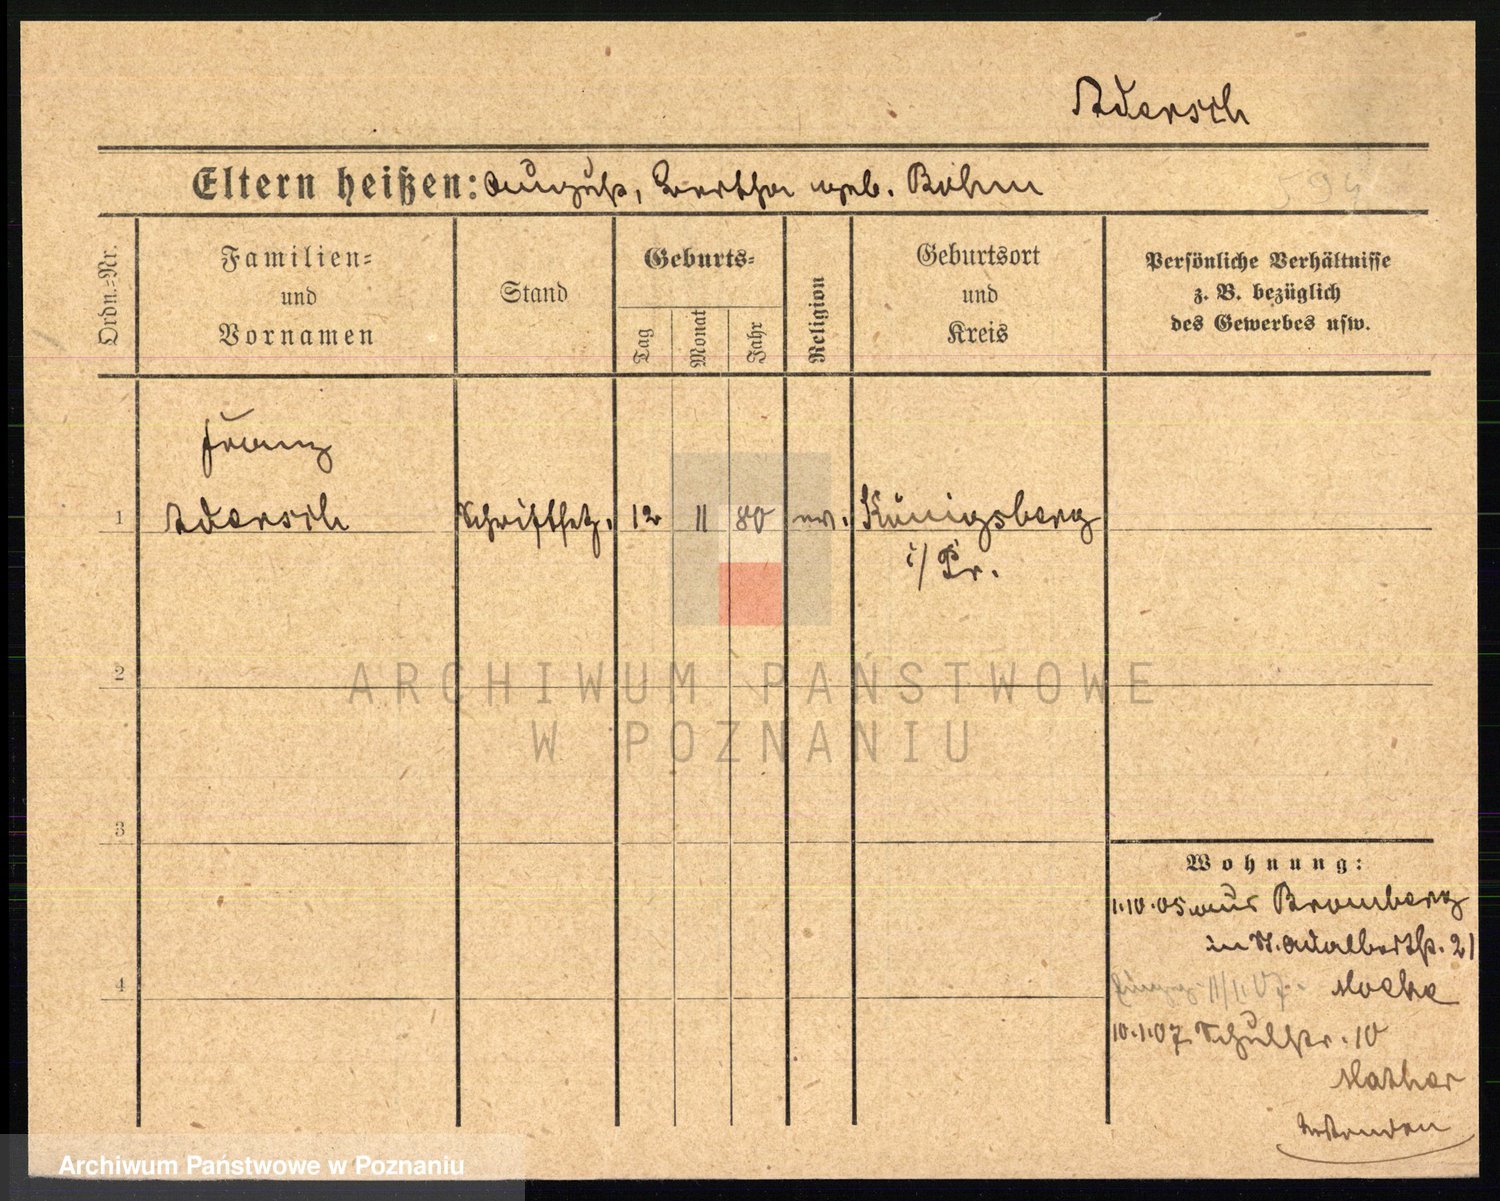 Adersch
Eltern heißen: August, Bertha geb. Böhm
594
Ordn.-Nr.
Familien-
und
Vornamen
Stand
Geburts-
Tag
Monat
Jahr
Religion
Geburtsort
und
Kreis
Persönliche Verhältnisse
z. B. bezüglich
des Gewerbes usw.
Franz
1 Adersch Schriftsetz. 12 11 80 ev. Königsberg
i/Pr.
2
ARCHIWUM PAŃSTWOWE
W POZNANIU
3
Wohnung:
1.10.05 aus Bromberg
in St. Adalbertstr. 21
4
10.1.07 Schulstr. 10
Archiwum Państwowe w Poznaniu